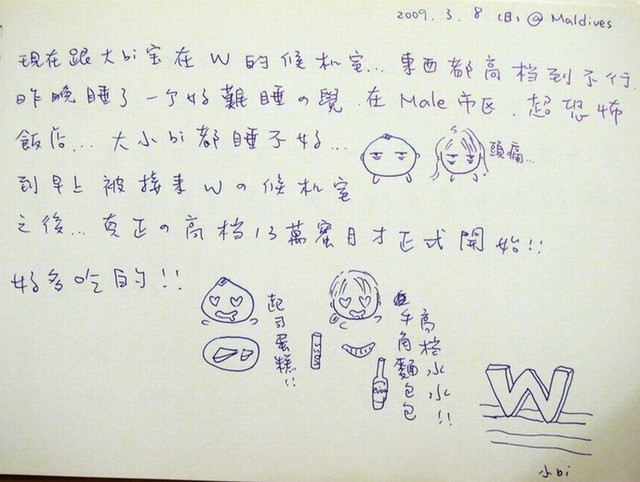 2009. 3. 8 (日) @ Maldives
現在跟大bi宝在W的候机室... 東西都高档到不行.
昨晚睡了一个好難睡の覺. 在Male市区. 超恐怖
飯店... 大小bi都睡不好...
頭痛...
到早上被接來Wの候机室
之後... 真正の高档13萬蜜月才正式開始!!
好多吃的!!
起司蛋糕!!
牛角麵包包
高档水水!!
voss
W
小bi